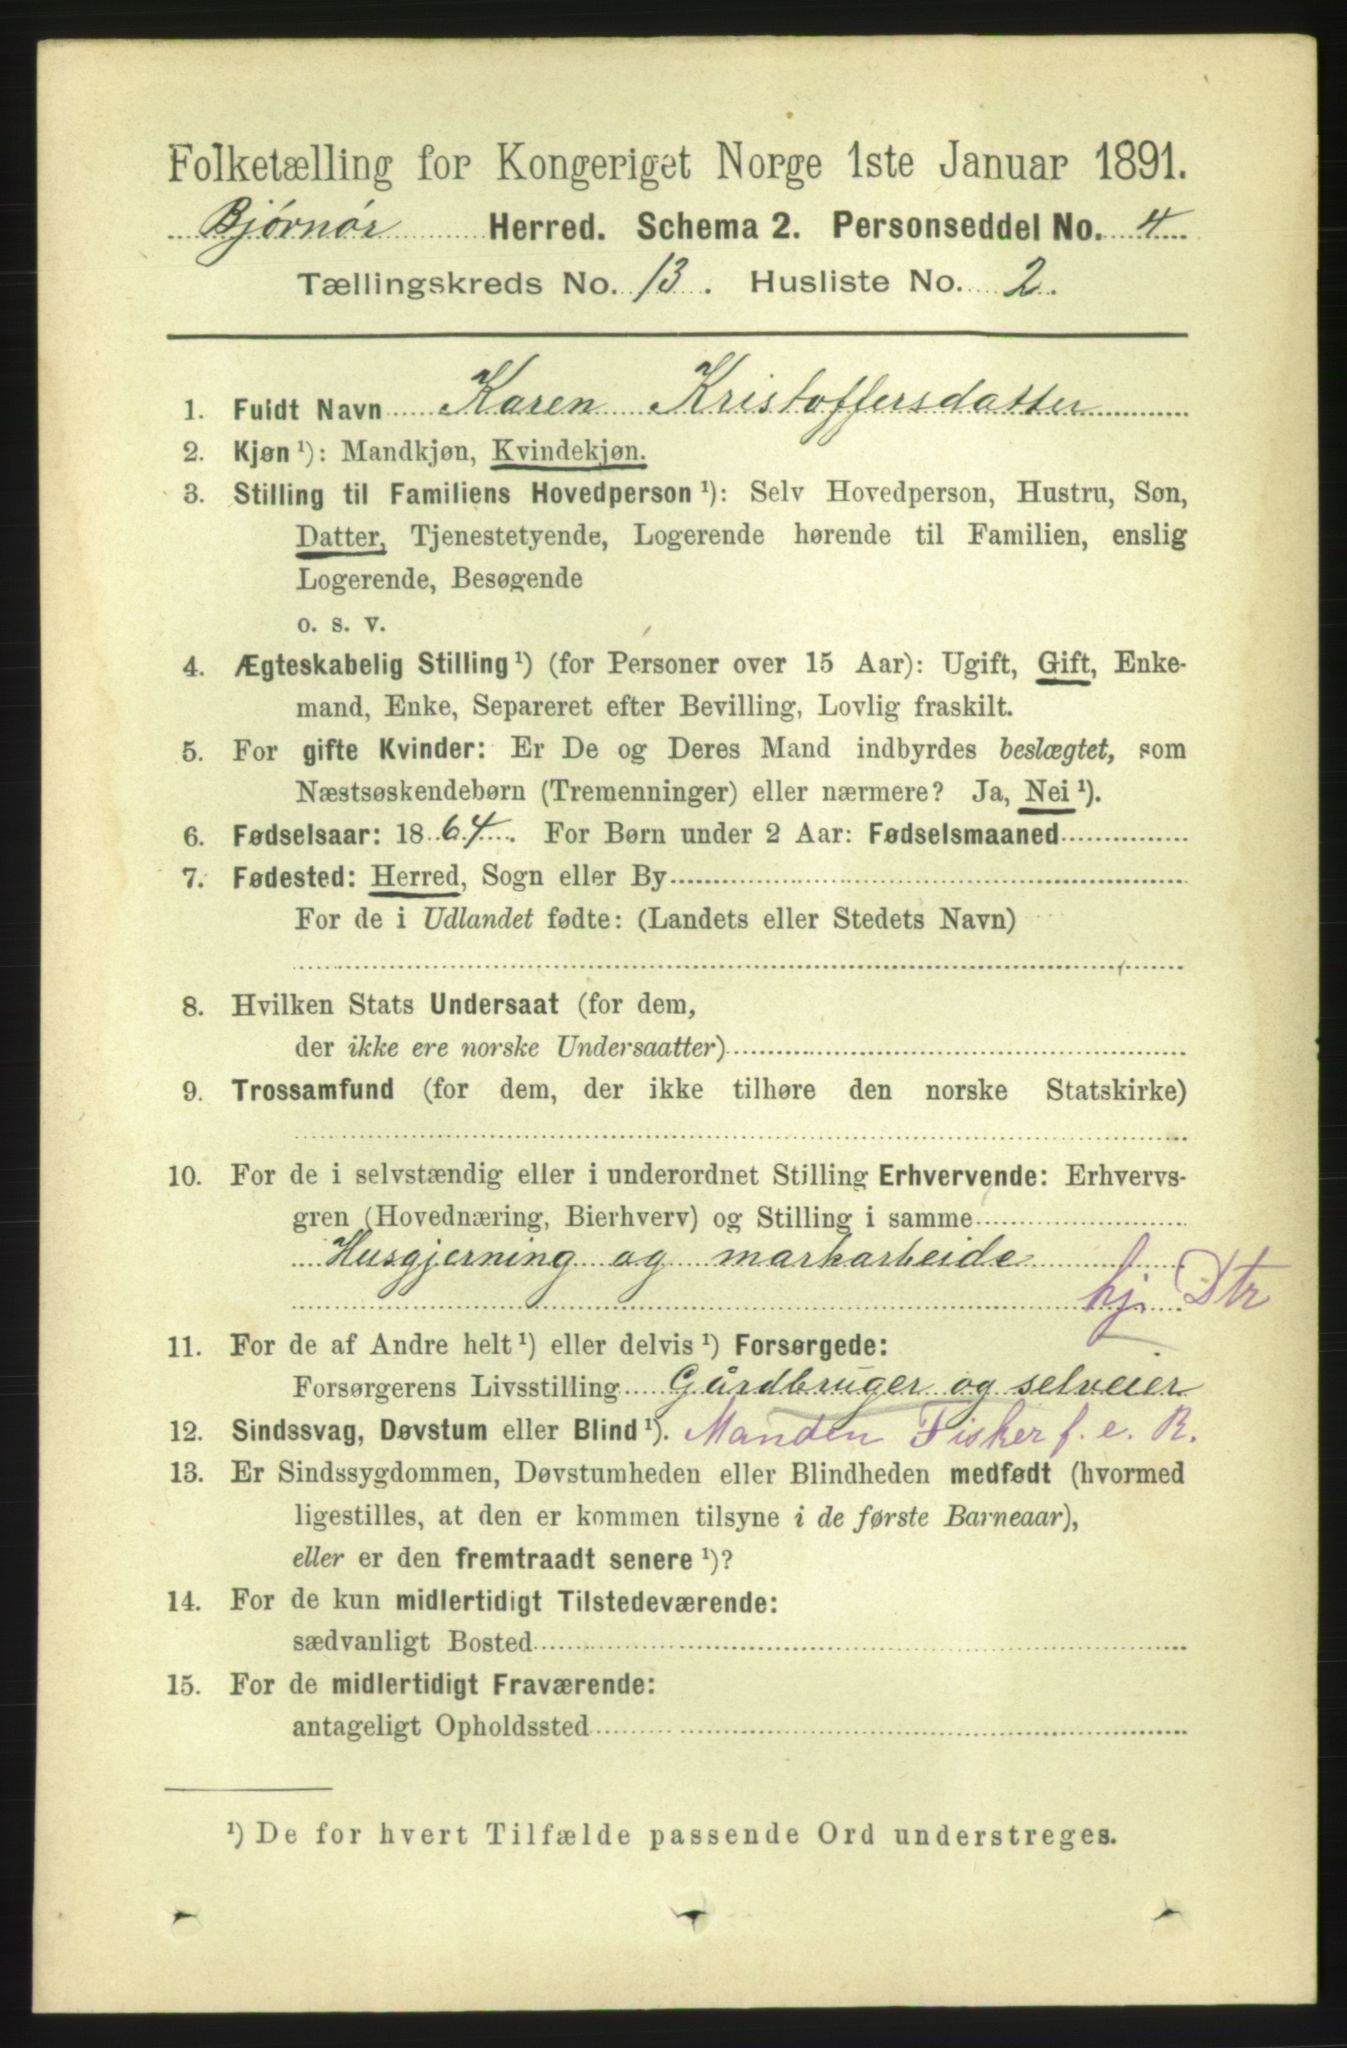 Folketælling for Kongeriget Norge 1ste Januar 1891.
Bjørnør Herred. Schema 2. Personseddel No. 4
Tællingskreds No. 13. Husliste No. 2.
1. Fuldt Navn Karen Kristoffersdatter
2. Kjøn ¹): Mandkjøn, Kvindekjøn.
3. Stilling til Familiens Hovedperson ¹): Selv Hovedperson, Hustru, Søn,
Datter, Tjenestetyende, Logerende hørende til Familien, enslig
Logerende, Besøgende
o. s. v.
4. Ægteskabelig Stilling ¹) (for Personer over 15 Aar): Ugift, Gift, Enke-
mand, Enke, Separeret efter Bevilling, Lovlig fraskilt.
5. For gifte Kvinder: Er De og Deres Mand indbyrdes beslægtet, som
Næstsøskendebørn (Tremenninger) eller nærmere? Ja, Nei ¹).
6. Fødselsaar: 1864. For Børn under 2 Aar: Fødselsmaaned
7. Fødested: Herred, Sogn eller By
For de i Udlandet fødte: (Landets eller Stedets Navn)
8. Hvilken Stats Undersaat (for dem,
der ikke ere norske Undersaatter)
9. Trossamfund (for dem, der ikke tilhøre den norske Statskirke)
10. For de i selvstændig eller i underordnet Stilling Erhvervende: Erhvervs-
gren (Hovednæring, Bierhverv) og Stilling i samme
Husgjerning og markarbeide
hj. Dtr
11. For de af Andre helt ¹) eller delvis ¹) Forsørgede:
Forsørgerens Livsstilling Gårdbruger og selveier
12. Sindssvag, Døvstum eller Blind ¹). Manden Fisker f. e. R.
13. Er Sindssygdommen, Døvstumheden eller Blindheden medfødt (hvormed
ligestilles, at den er kommen tilsyne i de første Barneaar),
eller er den fremtraadt senere ¹)?
14. For de kun midlertidigt Tilstedeværende:
sædvanligt Bosted
15. For de midlertidigt Fraværende:
antageligt Opholdssted
¹) De for hvert Tilfælde passende Ord understreges.